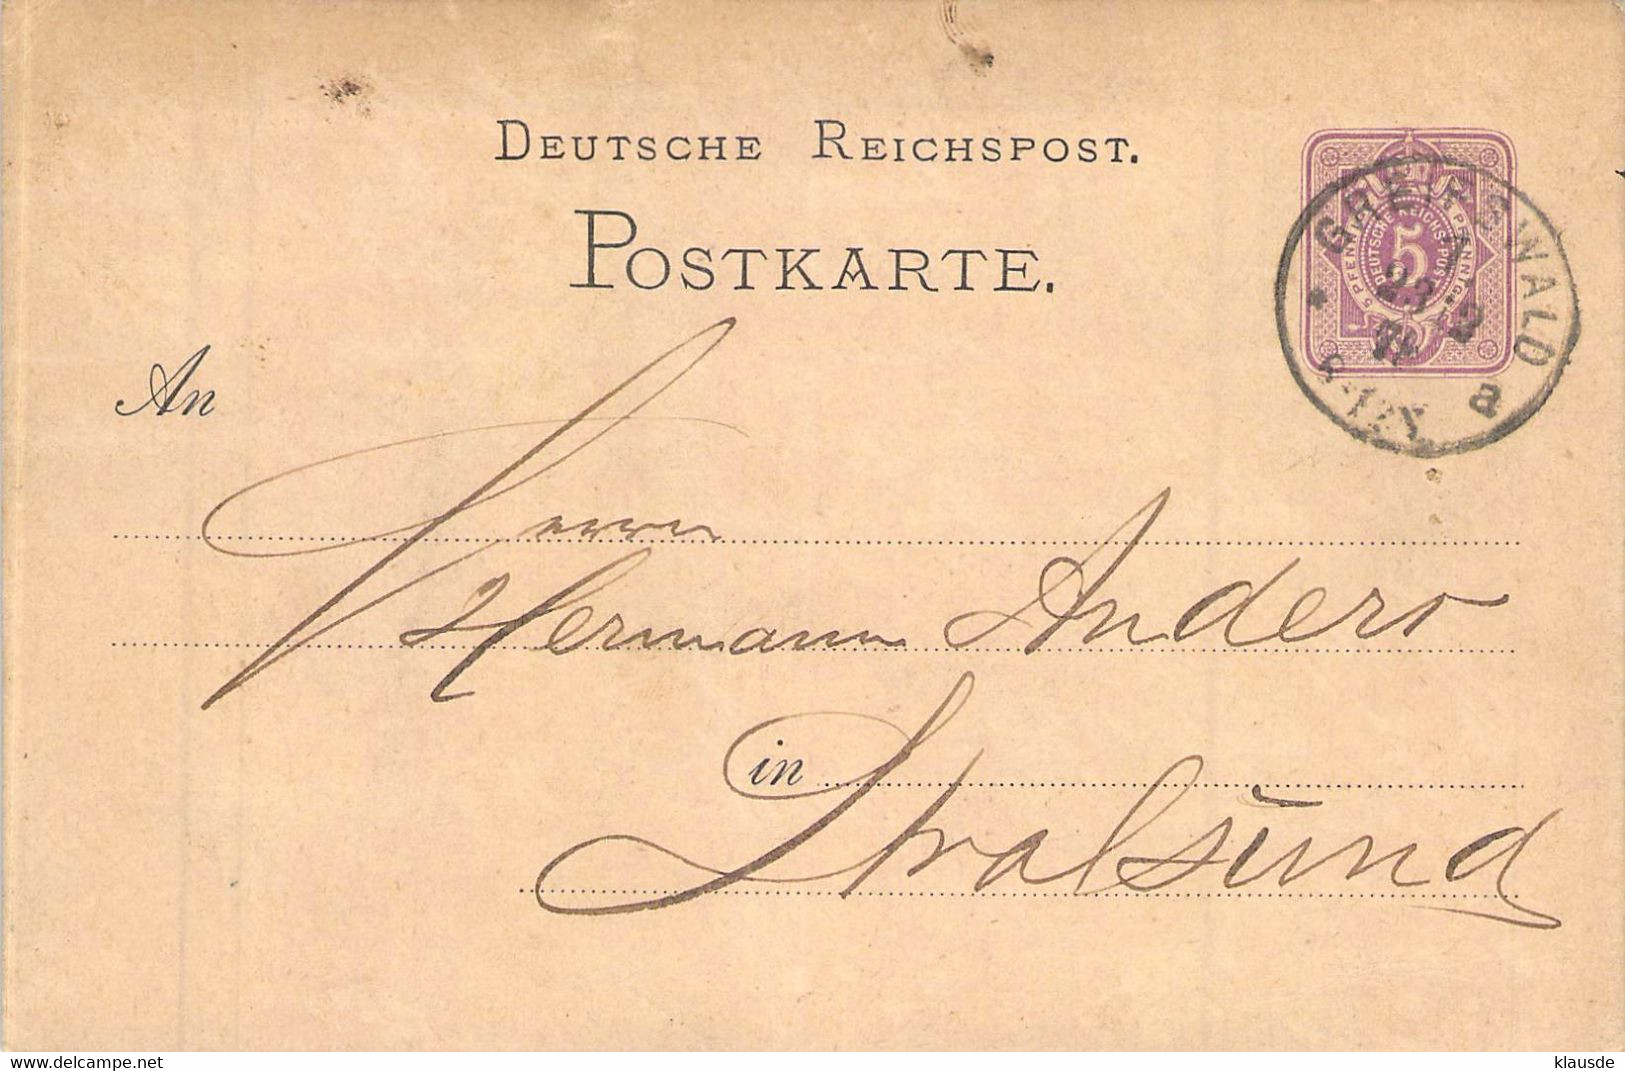 DEUTSCHE REICHSPOST.
POSTKARTE.
5 PFENNIG
DEUTSCHE REICHSPOST
5
GREIFSWALD
23
a
An
Herrn
Hermann Anders
in
Stralsund
www.delcampe.net
klausde